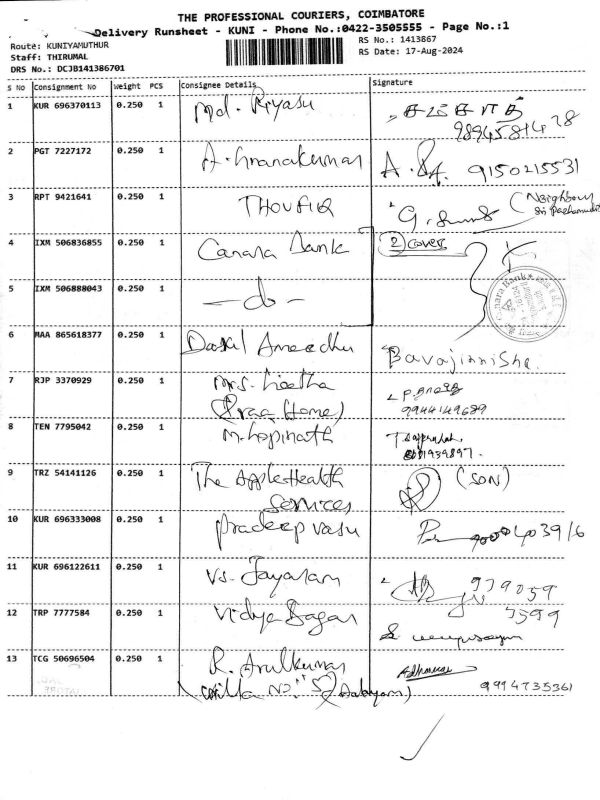 THE PROFESSIONAL COURIERS, COIMBATORE
Delivery Runsheet - KUNI - Phone No.:0422-3505555 - Page No.:1
Route: KUNIYAMUTHUR
RS No.: 1413867
Staff: THIRUMAL
RS Date: 17-Aug-2024
DRS No.: DCJB141386701
S No Consignment No Weight PCS Consignee Details Signature
1 KUR 696370113 0.250 1 Md. Riyasu
2 PGT 7227172 0.250 1 A. Gnanakumar 9150215531
3 RPT 9421641 0.250 1 THOUFIQ (Neighbour
4 IXM 506836855 0.250 1 Canara Bank 2 Covers
5 IXM 506888043 0.250 1 -do-
6 MAA 865618377 0.250 1 Bavajinnisha
7 RJP 3370929 0.250 1 Mrs. Geetha
(Home) 9944149689
8 TEN 7795042 0.250 1 M. Gopinath
9 TRZ 54141126 0.250 1 The Apple Health (SON)
Services
10 KUR 696333008 0.250 1 Pradeep vasu
11 KUR 696122611 0.250 1 Vs. Jayaram 979059
7599
12 TRP 7777584 0.250 1 Vidya Sagar
13 TCG 50696504 0.250 1 R. Arulkumar
(Villa No. 9994735361